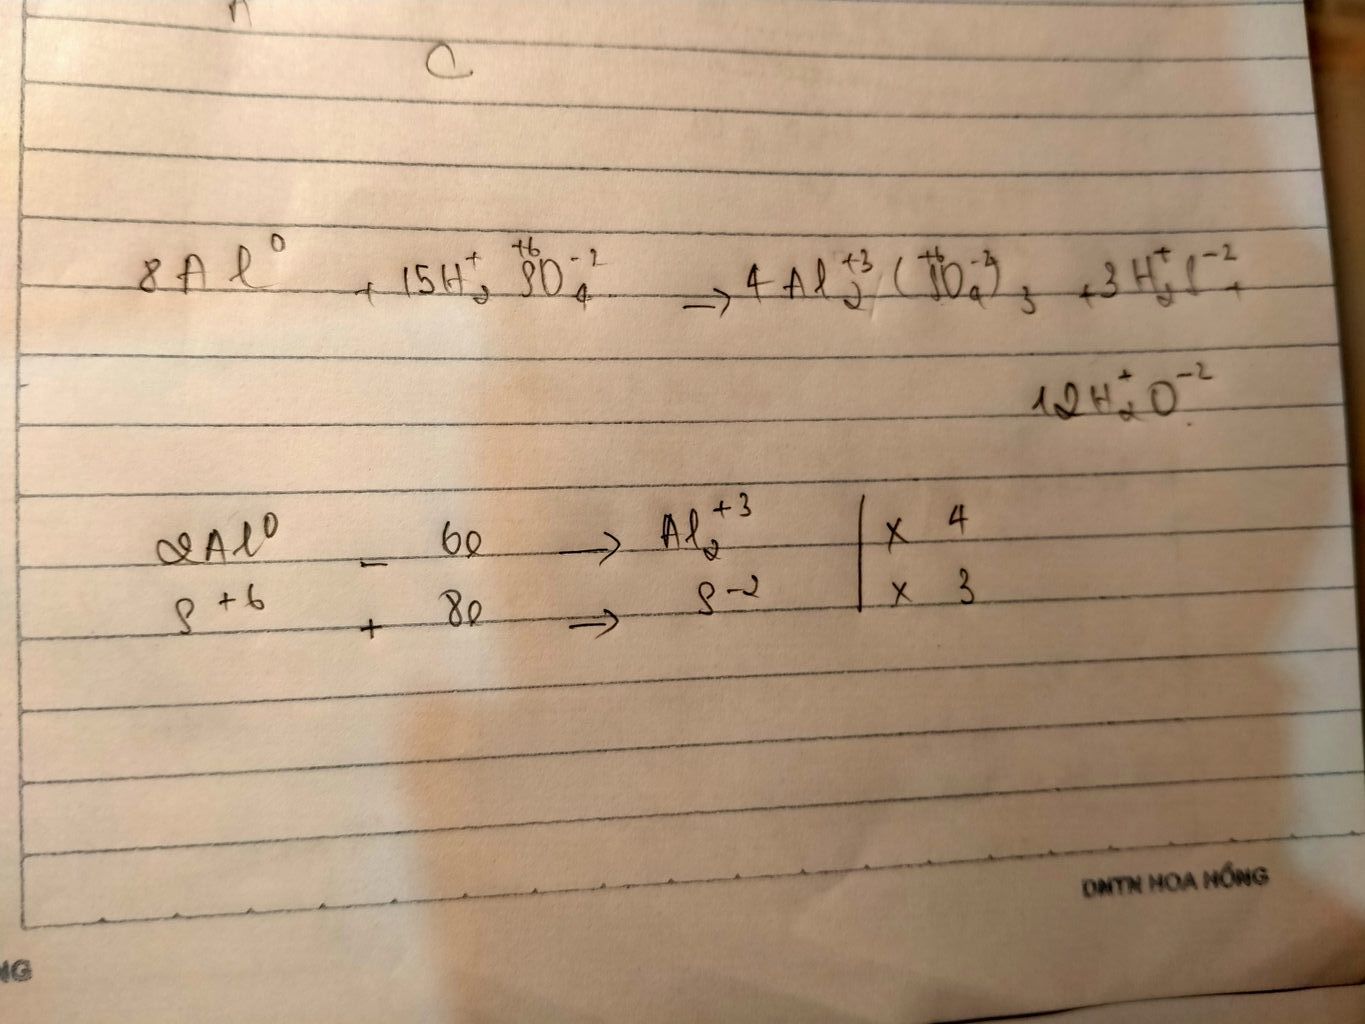 C
8Al⁰ + 15H₂⁺S⁺⁶O₄⁻² → 4Al₂⁺³(S⁺⁶O₄⁻²)₃ + 3H₂⁺S⁻² +
12H₂⁺O⁻²
2Al⁰ - 6e → Al₂⁺³ | x 4
S⁺⁶ + 8e → S⁻² | x 3
DNTN HOA HỒNG
NG